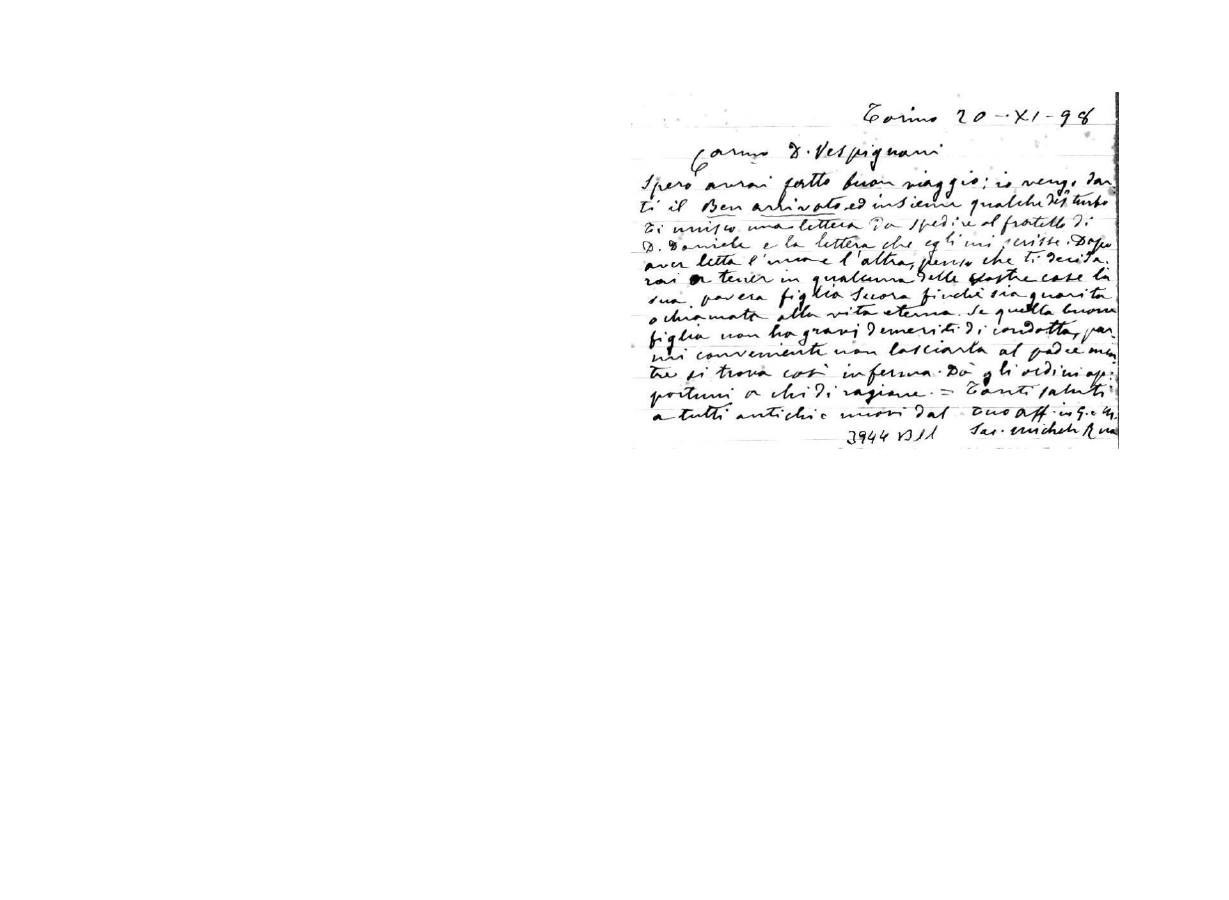 Torino 20-XI-98
Carmo D. Vespignani
Spero avrai fatto buon viaggio; io vengo dar
ti il Ben arrivato ed insieme qualche disturbo
Ti unisco una lettera da spedire al fratello di
D. Daniele e la lettera che egli mi scrisse. Dopo
aver letta l'una e l'altra, penso che ti decide-
rai a tener in qualcuna delle nostre case la
sua povera figlia Suora finché sia guarita
o chiamata alla vita eterna. Se quella buona
figlia non ha gravi demeriti di condotta, par-
mi conveniente non lasciarla al padre men
tre si trova così inferma. Dà gli ordini op-
portuni a chi di ragione. = Tanti saluti
a tutti antichi e nuovi dal tuo aff. in G. e M.
3944 Sac. Michele Rua